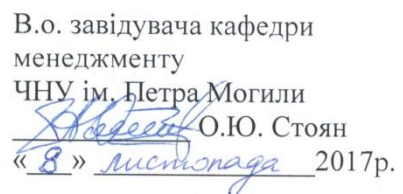 В.о. завідувача кафедри
менеджменту
ЧНУ ім. Петра Могили
О.Ю. Стоян
« 8 » листопада 2017р.